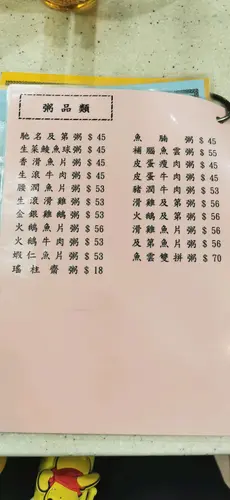 粥品類
馳名及第粥 $ 45
生菜鯪魚球粥 $ 45
香滑魚片粥 $ 45
生滾牛肉粥 $ 45
腰潤魚片粥 $ 53
生滾滑雞粥 $ 53
金銀雞鵝粥 $ 53
火鵝魚片粥 $ 53
火鵝牛肉粥 $ 53
蝦仁魚片粥 $ 53
瑤柱齋粥 $ 18
魚腩粥 $ 45
補腦魚雲粥 $ 55
皮蛋瘦肉粥 $ 45
皮蛋牛肉粥 $ 45
豬潤牛肉粥 $ 53
及第滑雞粥 $ 56
火鵝及第粥 $ 56
滑雞魚片粥 $ 56
及第魚片粥 $ 56
魚雲雙拼粥 $ 70